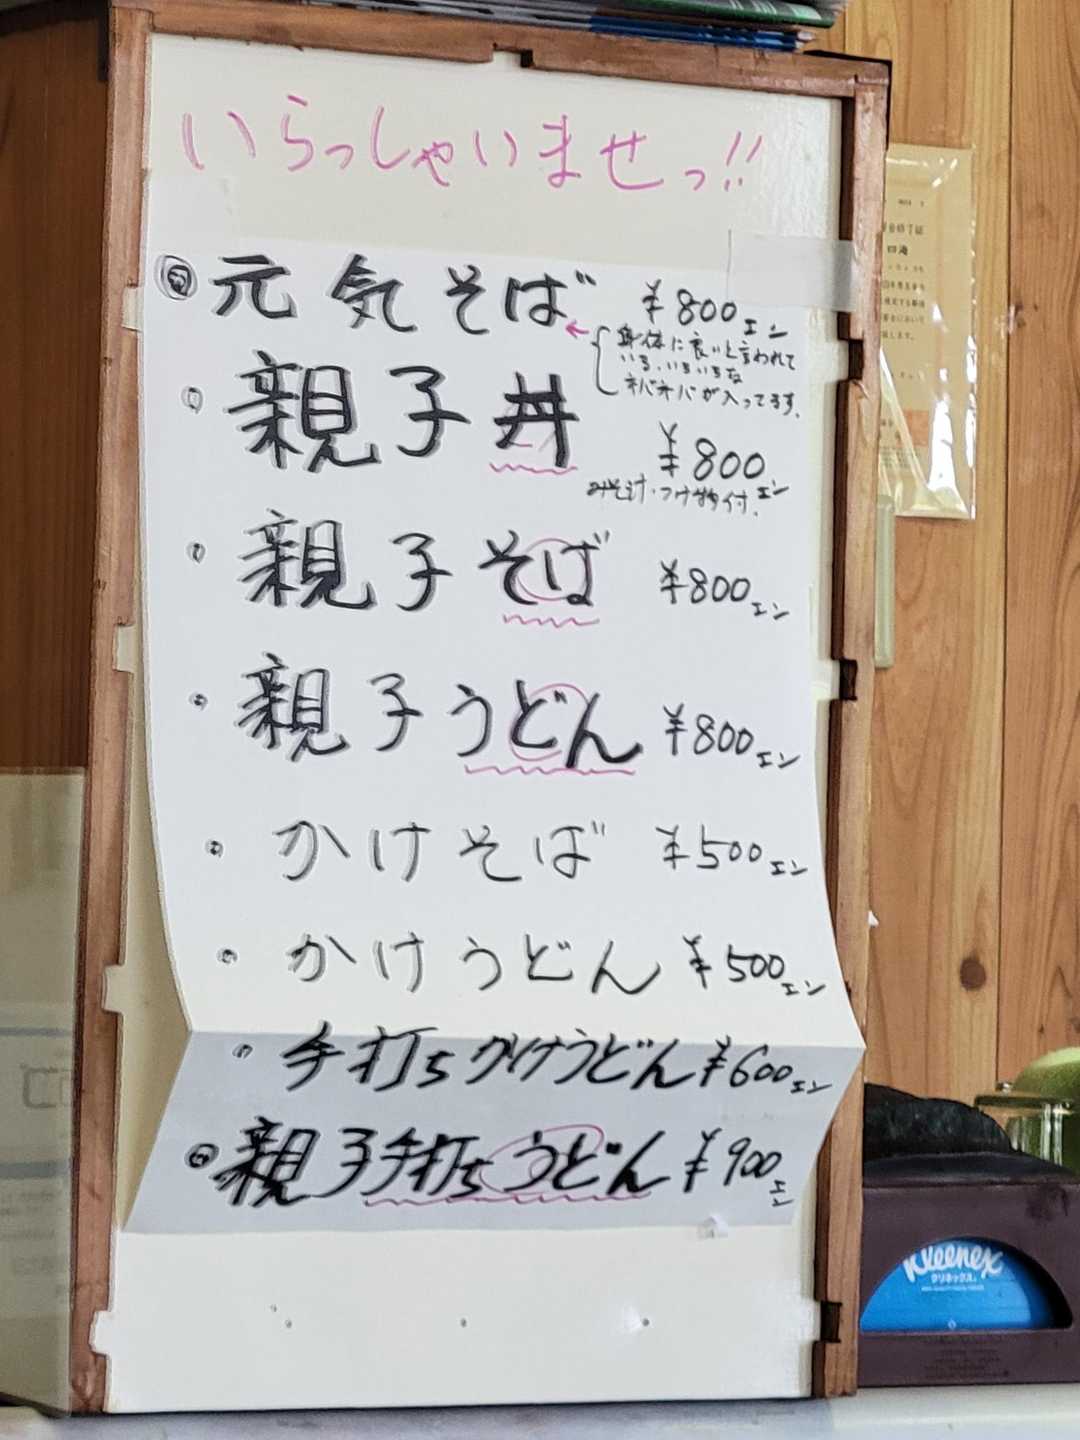 いらっしゃいませっ!!
元気そば ¥800エン
身体に良いと言われて
いる、いろいろな
ネバネバが入ってます。
・親子丼 ¥800エン
みそ汁・つけ物付、
・親子そば ¥800エン
・親子うどん ¥800エン
・かけそば ¥500エン
・かけうどん ¥500エン
・手打ちかけうどん ¥600エン
親子手打ちうどん ¥900エン
Kleenex
クリネックス